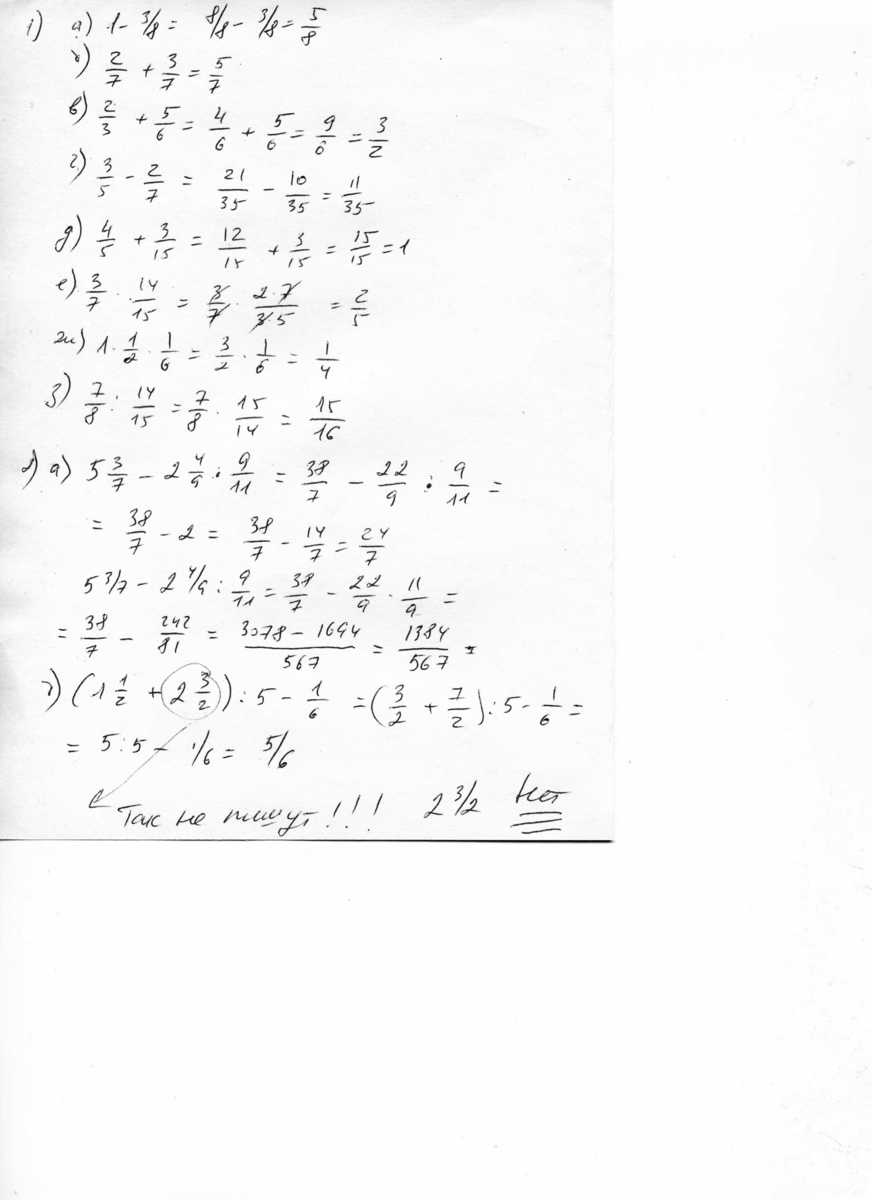 1) а) 1 - 3/8 = 8/8 - 3/8 = 5/8
б) 2/7 + 3/7 = 5/7
в) 2/3 + 5/6 = 4/6 + 5/6 = 9/6 = 3/2
г) 3/5 - 2/7 = 21/35 - 10/35 = 11/35
д) 4/5 + 3/15 = 12/15 + 3/15 = 15/15 = 1
е) 3/7 · 14/15 = 3/7 · 2·7/3·5 = 2/5
ж) 1 · 1/2 · 1/6 = 3/2 · 1/6 = 1/4
з) 7/8 : 14/15 = 7/8 · 15/14 = 15/16
2) а) 5 3/7 - 2 4/9 · 9/11 = 38/7 - 22/9 · 9/11 =
= 38/7 - 2 = 38/7 - 14/7 = 24/7
5 3/7 - 2 4/9 : 9/11 = 38/7 - 22/9 · 11/9 =
= 38/7 - 242/81 = 3078 - 1694/567 = 1384/567
б) (1 1/2 + 2 3/2) : 5 - 1/6 = (3/2 + 7/2) : 5 - 1/6 =
= 5 : 5 - 1/6 = 5/6
Так не пишут!!! 2 3/2 Нет